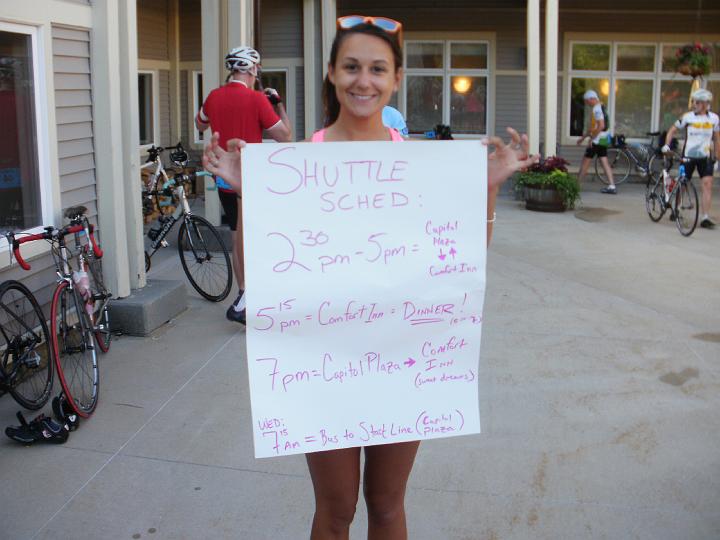 SHUTTLE
SCHED:
2 30 pm - 5pm = Capital Plaza ↓↑ Comfort Inn
5 15 pm = Comfort Inn = DINNER!
7pm = Capitol Plaza → COMFORT INN (sweet dreams)
WED:
7 15 AM = BUS to Start Line (Capital Plaza)